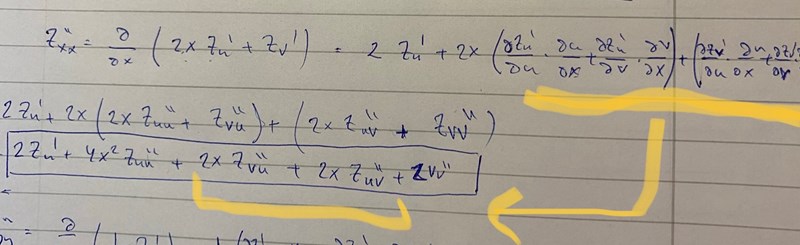 z''xx = ∂/∂x ( 2x z'u + z'v ) = 2 z'u + 2x ( ∂z'u/∂u · ∂u/∂x + ∂z'u/∂v · ∂v/∂x ) + ( ∂z'v/∂u · ∂u/∂x + ∂z'v/∂v
2 z'u + 2x ( 2x z''uu + z''vu ) + ( 2x z''uv + z''vv )
2 z'u + 4x² z''uu + 2x z''vu + 2x z''uv + z''vv